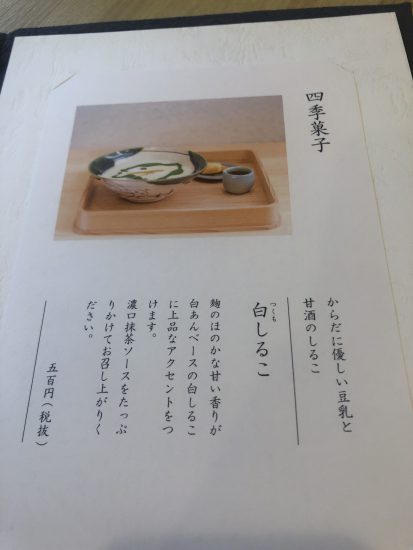 四季菓子
からだに優しい豆乳と
甘酒のしるこ
つくも
白しるこ
麹のほのかな甘い香りが
白あんベースの白しるこ
に上品なアクセントをつ
けます。
濃口抹茶ソースをたっぷ
りかけてお召し上がりく
ださい。
五百円（税抜）